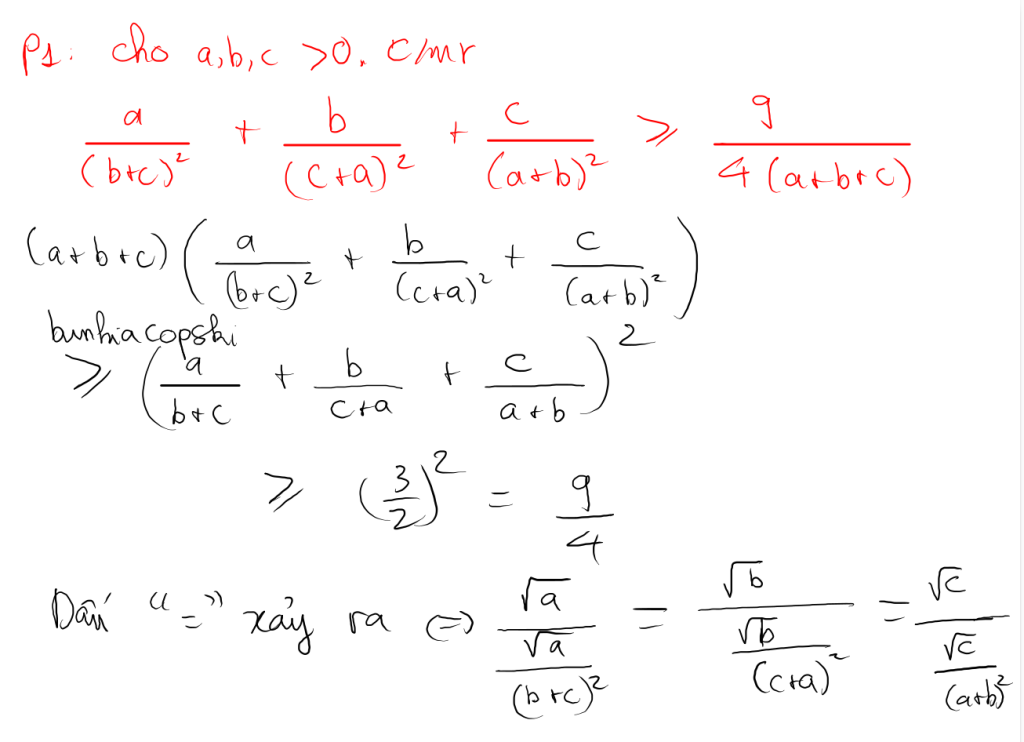 P1: cho a,b,c >0. C/mr
a/(b+c)² + b/(c+a)² + c/(a+b)² ≥ 9/4(a+b+c)
(a+b+c)(a/(b+c)² + b/(c+a)² + c/(a+b)²)
bunhiacopski
≥ (a/b+c + b/c+a + c/a+b)²
≥ (3/2)² = 9/4
Dấu "=" xảy ra ⇔ √a/(√a/(b+c)²) = √b/(√b/(c+a)²) = √c/(√c/(a+b)²)